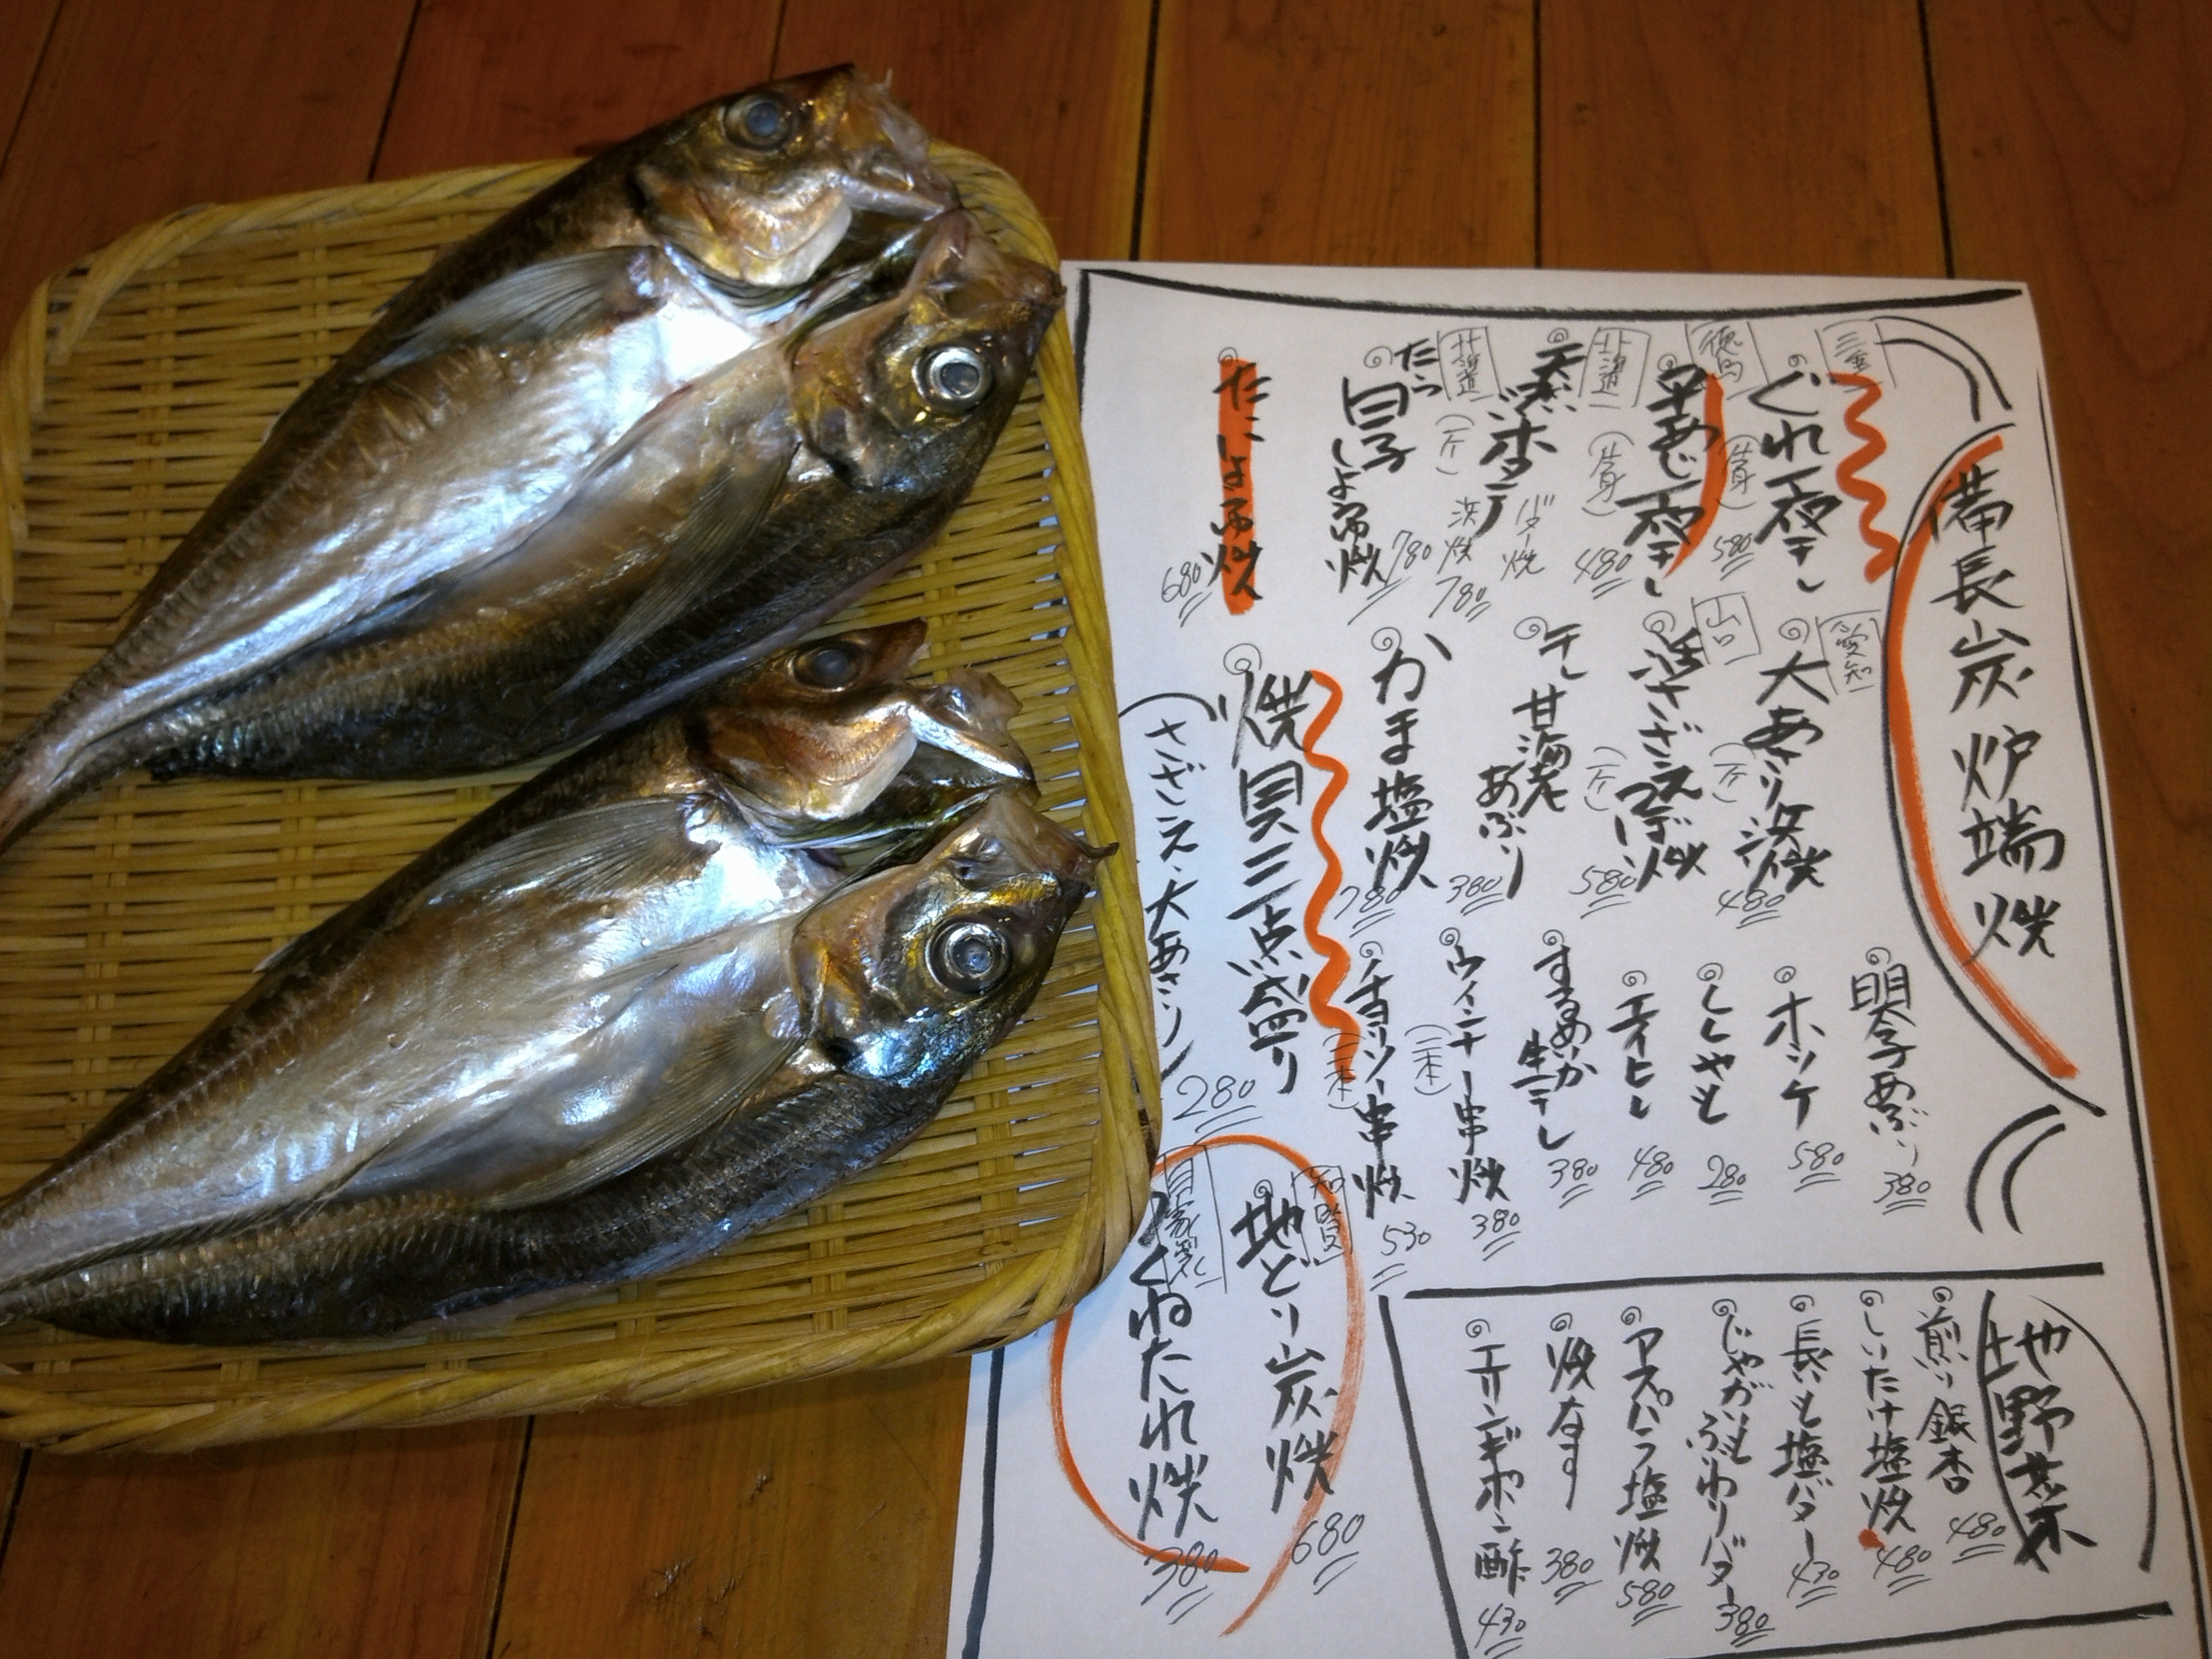 備長炭炉端焼
三重
ぐれ一夜干し
(半身)
580
徳島
平あじ一夜干し
(半身)
480
北海道
天然ホタテ
バター焼
浜焼
(一ケ)
780
北海道
たら
白子しょうゆ焼
780
たこしょうゆ焼
680
愛知
大あさり浜焼
(一ケ)
480
山口
活さざえつぼ焼
(一ケ)
580
干し甘海老あぶり
380
かま塩焼
780
焼貝三点盛り
さざえ、大あさり
280
明太子あぶり
380
ホッケ
580
ししゃも
280
エイヒレ
480
するめいか生干し
380
ウインナー串焼
(二本)
380
チョリソー串焼
(二本)
530
地どり炭焼
680
自家製
つくねたれ焼
380
地野菜
煎り銀杏
480
しいたけ塩焼
480
長いも塩バター
430
じゃがいもふわりバター
380
アスパラ塩焼
580
焼なす
380
エリンギポン酢
430